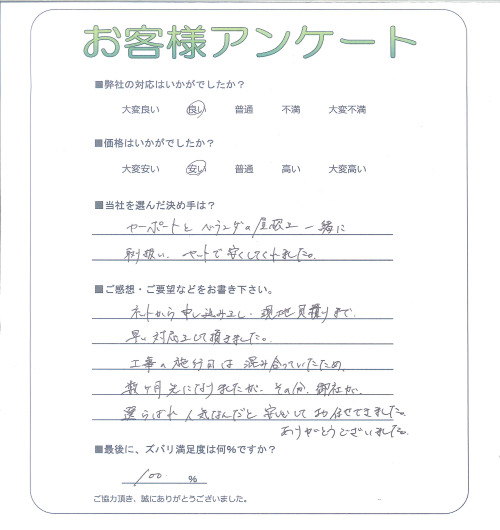 お客様アンケート
■弊社の対応はいかがでしたか？
大変良い 良い 普通 不満 大変不満
■価格はいかがでしたか？
大変安い 安い 普通 高い 大変高い
■当社を選んだ決め手は？
カーポートとベランダの屋根を一緒に
取扱い、セットで安くしてくれました。
■ご感想・ご要望などをお書き下さい。
ネットから申し込みをし、現地見積りまで、
早い対応をして頂きました。
工事の施行日は混み合っていたため、
数ヶ月先になりましたが、その分、御社が、
選らばれ人気なんだと安心してお任せできました。
ありがとうございました。
■最後に、ズバリ満足度は何%ですか？
100 %
ご協力頂き、誠にありがとうございました。